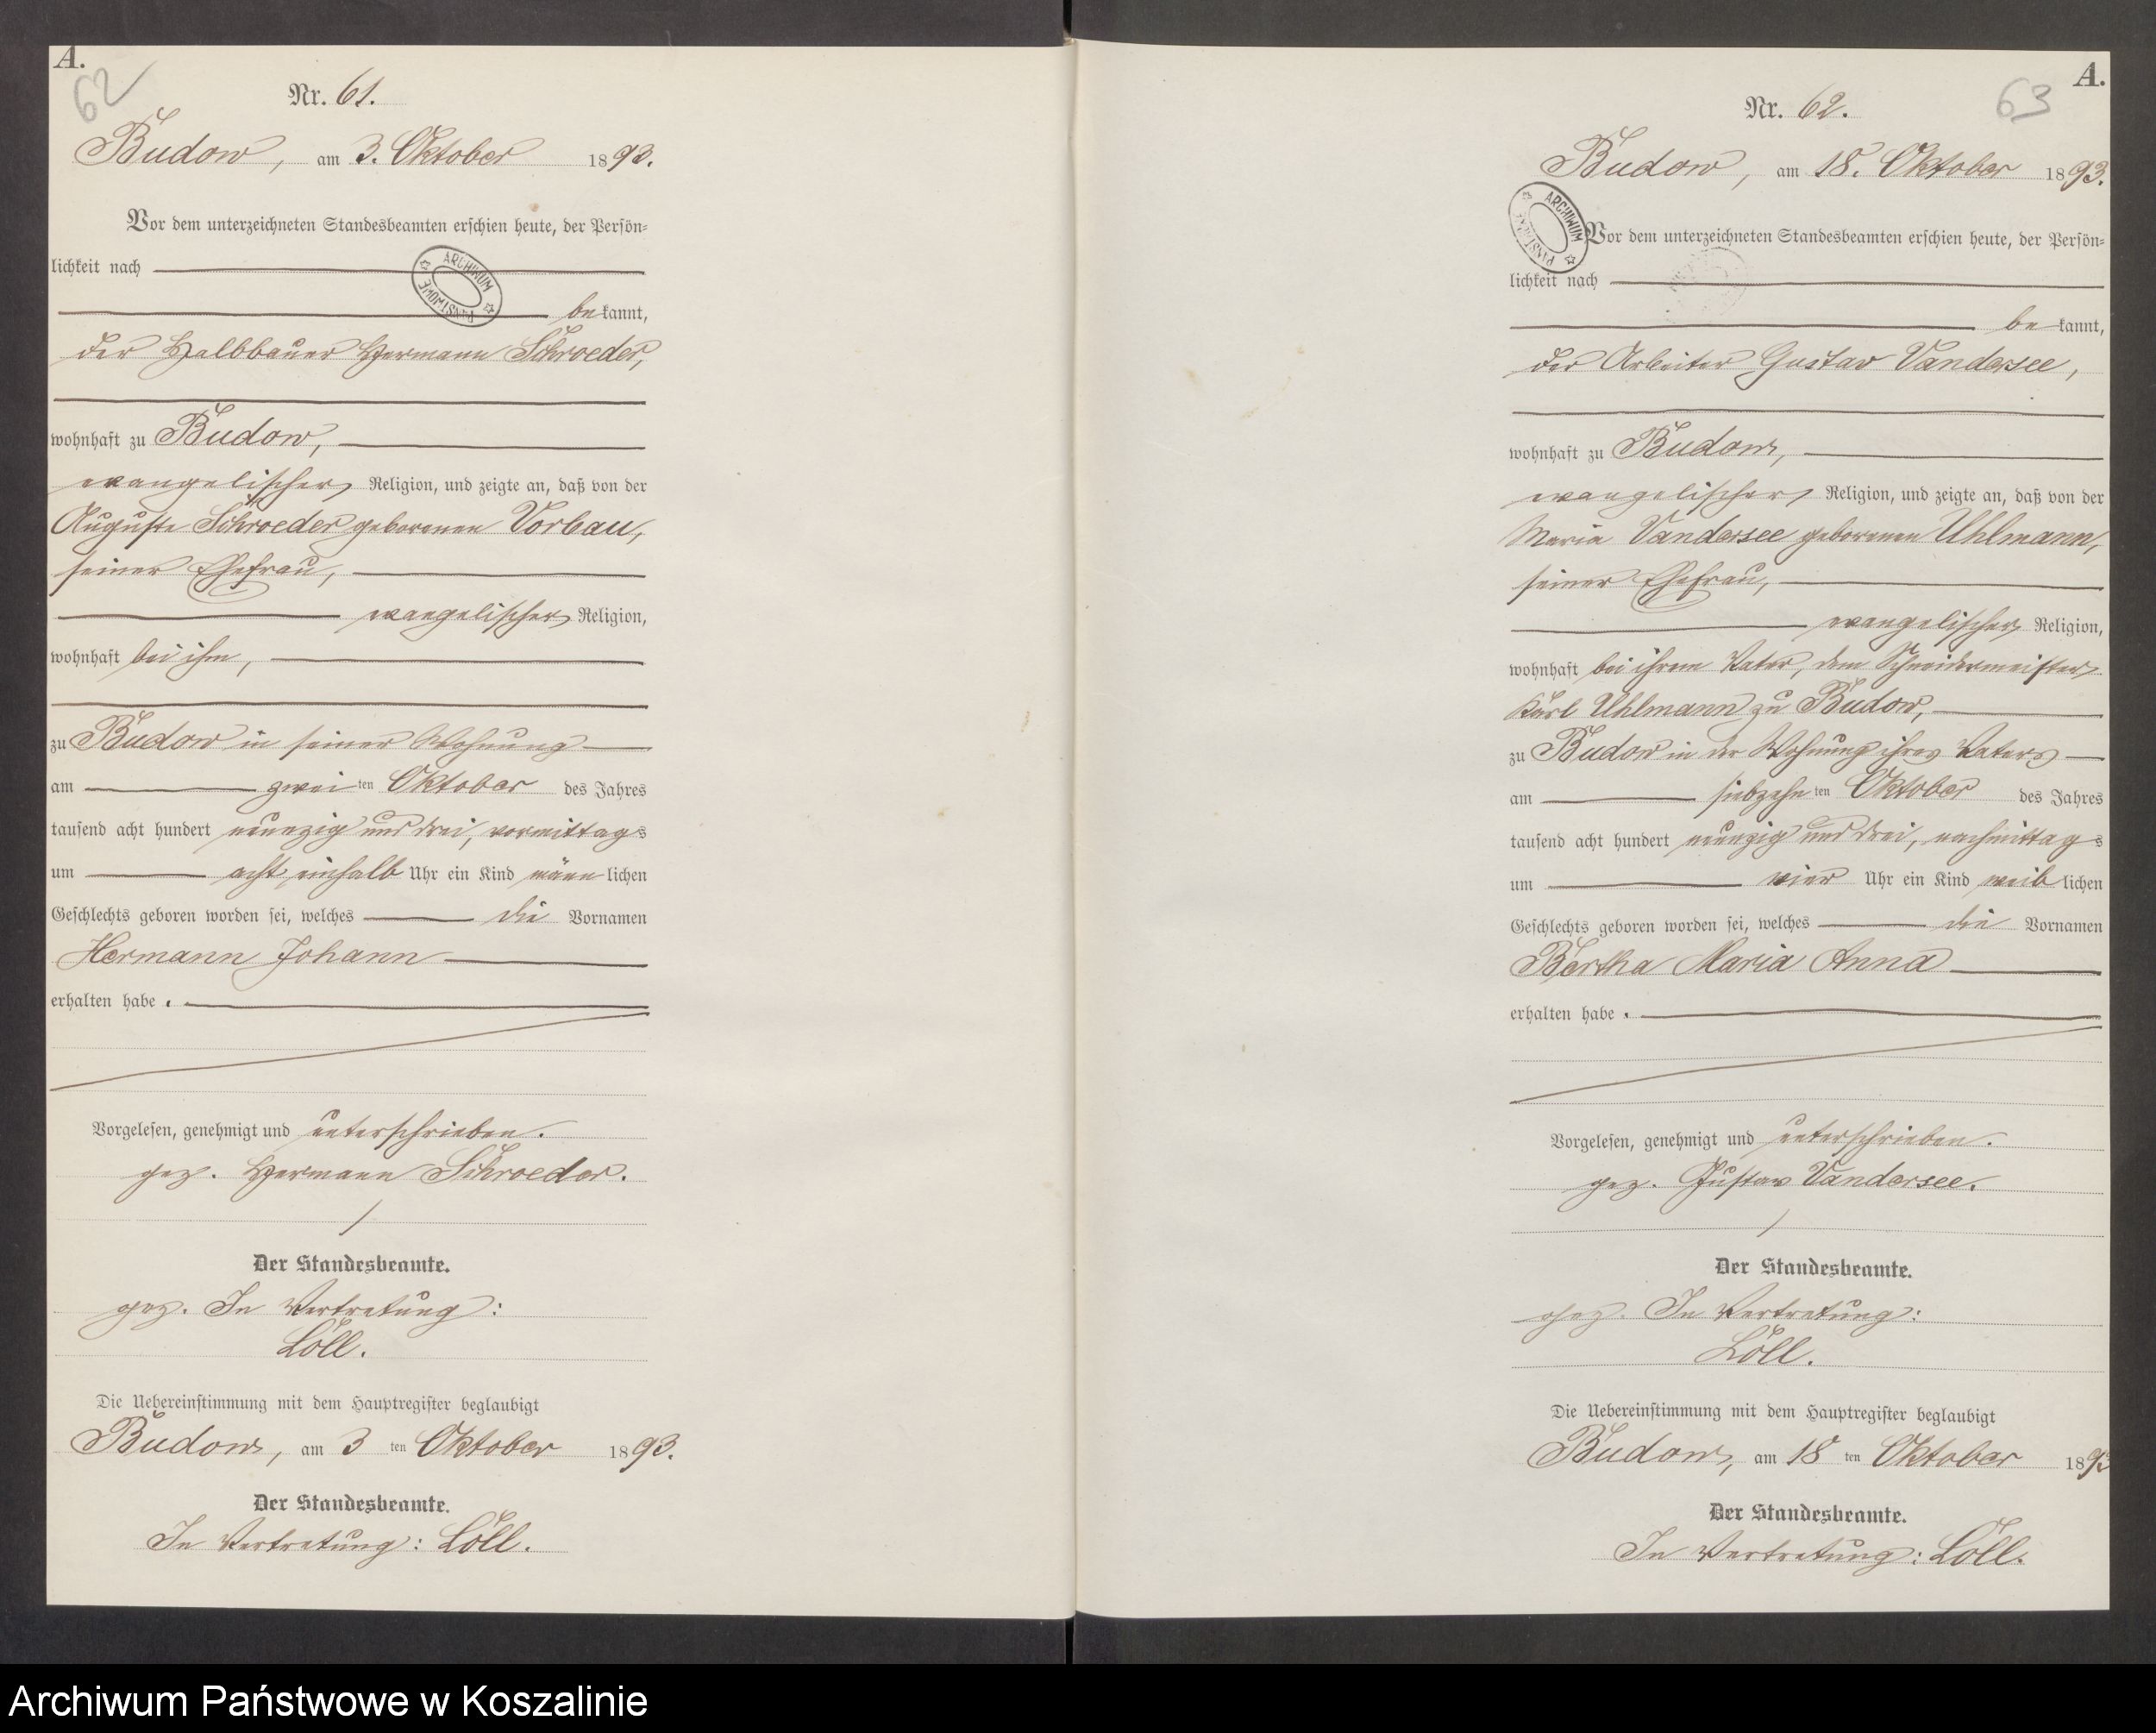 A.
62
Nr. 61.
Budow, am 3. Oktober 1893.
Vor dem unterzeichneten Standesbeamten erschien heute, der Persön-
lichkeit nach
ARCHIWUM PAŃSTWOWE
bekannt,
der Halbbauer Hermann Schroeder,
wohnhaft zu Budow,
evangelischer Religion, und zeigte an, daß von der
Auguste Schroeder geborenen Vorbau,
seiner Ehefrau,
evangelischer Religion,
wohnhaft bei ihm,
zu Budow in seiner Wohnung
am zweiten Oktober des Jahres
tausend acht hundert neunzig und drei, vormittags
um acht einhalb Uhr ein Kind männlichen
Geschlechts geboren worden sei, welches die Vornamen
Hermann Johann
erhalten habe.
Vorgelesen, genehmigt und unterschrieben.
gez. Hermann Schroeder.
Der Standesbeamte.
gez. In Vertretung:
Löll.
Die Uebereinstimmung mit dem Hauptregister beglaubigt
Budow, am 3ten Oktober 1893.
Der Standesbeamte.
In Vertretung: Löll.
A.
63
Nr. 62.
Budow, am 18. Oktober 1893.
ARCHIWUM PAŃSTWOWE
Vor dem unterzeichneten Standesbeamten erschien heute, der Persön-
lichkeit nach
bekannt,
der Arbeiter Gustav Vandersee,
wohnhaft zu Budow,
evangelischer Religion, und zeigte an, daß von der
Maria Vandersee geborenen Uhlmann,
seiner Ehefrau,
evangelischer Religion,
wohnhaft bei ihrem Vater, dem Schneidermeister
Karl Uhlmann zu Budow,
zu Budow in der Wohnung ihres Vaters
am siebzehnten Oktober des Jahres
tausend acht hundert neunzig und drei, nachmittags
um vier Uhr ein Kind weiblichen
Geschlechts geboren worden sei, welches die Vornamen
Bertha Maria Anna
erhalten habe.
Vorgelesen, genehmigt und unterschrieben.
gez. Gustav Vandersee.
Der Standesbeamte.
gez. In Vertretung:
Löll.
Die Uebereinstimmung mit dem Hauptregister beglaubigt
Budow, am 18ten Oktober 1893
Der Standesbeamte.
In Vertretung: Löll.
Archiwum Państwowe w Koszalinie